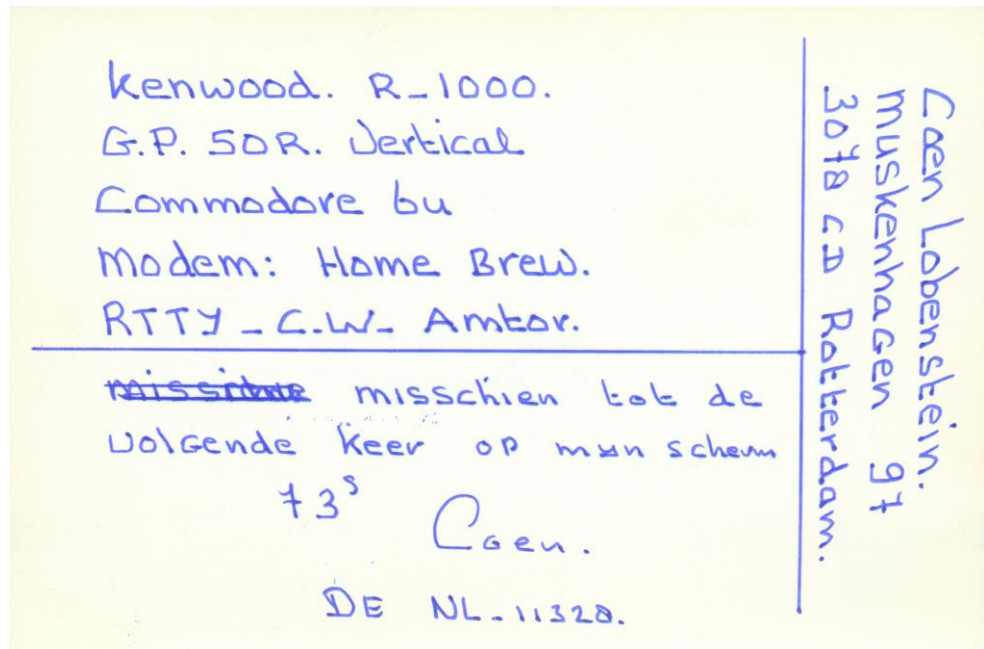 Kenwood. R-1000.
G.P. 50R. Vertical
Commodore 64
Modem: Home Brew.
RTTY - C.W. - Amtor.
misschien tot de
volgende keer op mijn scherm
73s
Coen.
DE NL-11328.
Coen Lobenstein.
Muskenhagen 97
3078 CD Rotterdam.